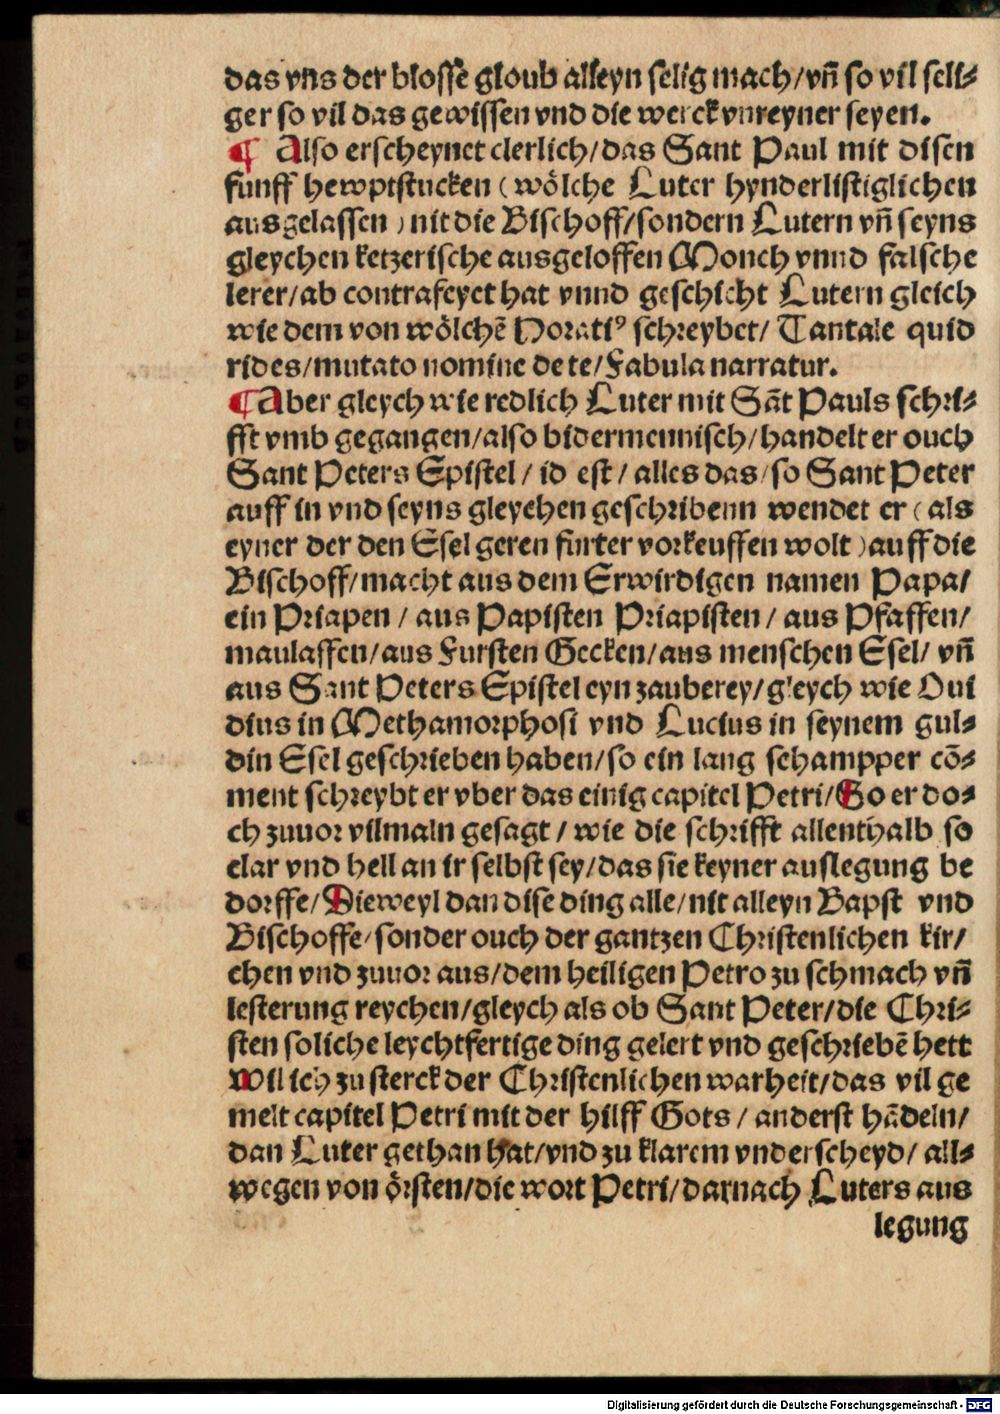 das vns der blosse gloub alleyn selig mach/vn̄ so vil seli⸗
ger so vil das gewissen vnd die werck vnreyner seyen.
¶ Also erscheynet clerlich/das Sant Paul mit disen
funff hewptstucken (wölche Luter hynderlistiglichen
ausgelassen) nit die Bischoff/sondern Lutern vn̄ seyns
gleychen ketzerische ausgeloffen Monch vnnd falsche
lerer/ab contrafeyet hat vnnd geschicht Lutern gleich
wie dem von wölchē Horatiꝰ schreybet/ Tantale quid
rides/mutato nomine de te/Fabula narratur.
¶Aber gleych wie redlich Luter mit Sāt Pauls schri⸗
fft vmb gegangen/also bidermennisch/handelt er ouch
Sant Peters Epistel/ id est/ alles das/so Sant Peter
auff in vnd seyns gleyehen geschribenn wendet er (als
eyner der den Esel geren furter vorkeuffen wolt) auff die
Bischoff/macht aus dem Erwirdigen namen Papa/
ein Priapen / aus Papisten Priapisten / aus Pfaffen/
maulaffen/aus Fursten Gecken/aus menschen Esel/ vn̄
aus Sant Peters Epistel eyn zauberey/gleych wie Oui
dius in Methamorphosi vnd Lucius in seynem gul⸗
din Esel geschrieben haben/so ein lang schampper cō⸗
ment schreybt er vber das einig capitel Petri/So er do⸗
ch zuuor vilmaln gesagt / wie die schrifft allenthalb so
clar vnd hell an ir selbst sey/das sie keyner auslegung be
dorffe/Dieweyl dan dise ding alle/nit alleyn Bapst vnd
Bischoffe/sonder ouch der gantzen Christenlichen kir/
chen vnd zuuor aus/dem heiligen Petro zu schmach vn̄
lesterung reychen/gleych als ob Sant Peter/die Chri⸗
sten soliche leychtfertige ding gelert vnd geschriebē hett
Wil ich zu sterck der Christenlichen warheit/das vil ge
melt capitel Petri mit der hilff Gots / anderst hādeln/
dan Luter gethan hat/vnd zu klarem vnderscheyd/ all⸗
wegen von örsten/die wort Petri/darnach Luters aus
legung
Digitalisierung gefördert durch die Deutsche Forschungsgemeinschaft - DFG